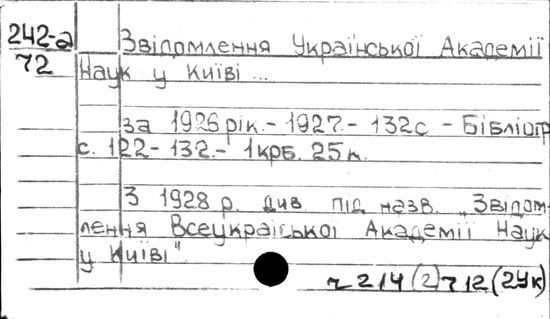 242-а
72
Звідомлення Української Академії
Наук у Київі ...
за 1926 рік. - 1927. - 132 с. - Бібліогр
с. 122 - 132. - 1 крб. 25 к.
З 1928 р. див. під назв. „Звідом-
лення Всеукраїської Академії Наук
у Київі"
ч 214 (2) ч 12 (2Ук)